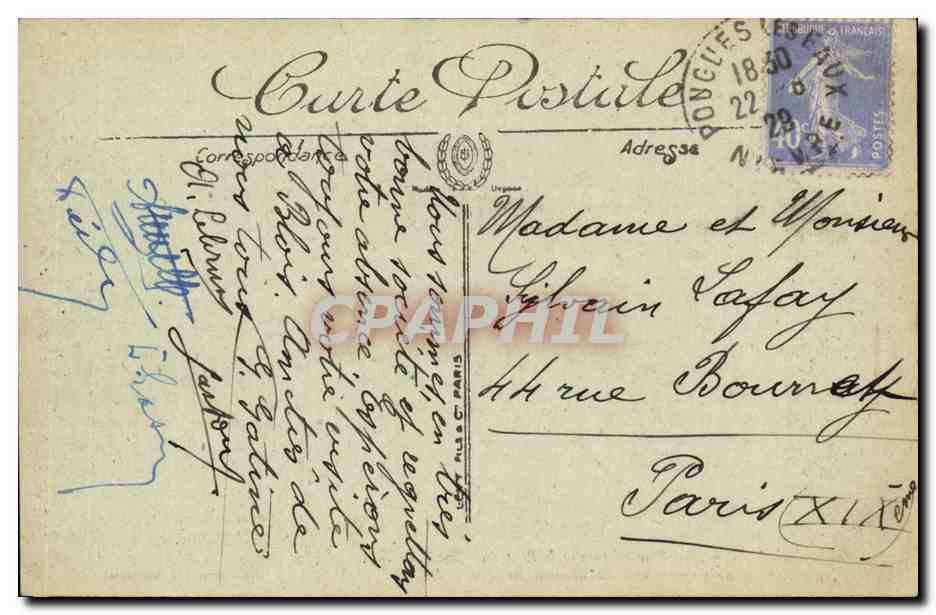 Carte Postale
Correspondance
Adresse
POUGUES LES EAUX
18 30
22 - 8
29
NIÈVRE
RÉPUBLIQUE FRANÇAISE
40 c
POSTES
Nous sommes en très
bonne société et regrettons
votre absence. Espérons
toujours votre visite
à Blois. Amitiés de
nous tous. G. Gatine
Madame et Monsieur
Sylvain Lafay
44 rue Bourret
Paris (XIXème)
FILS & Cie PARIS
CPAPHIL